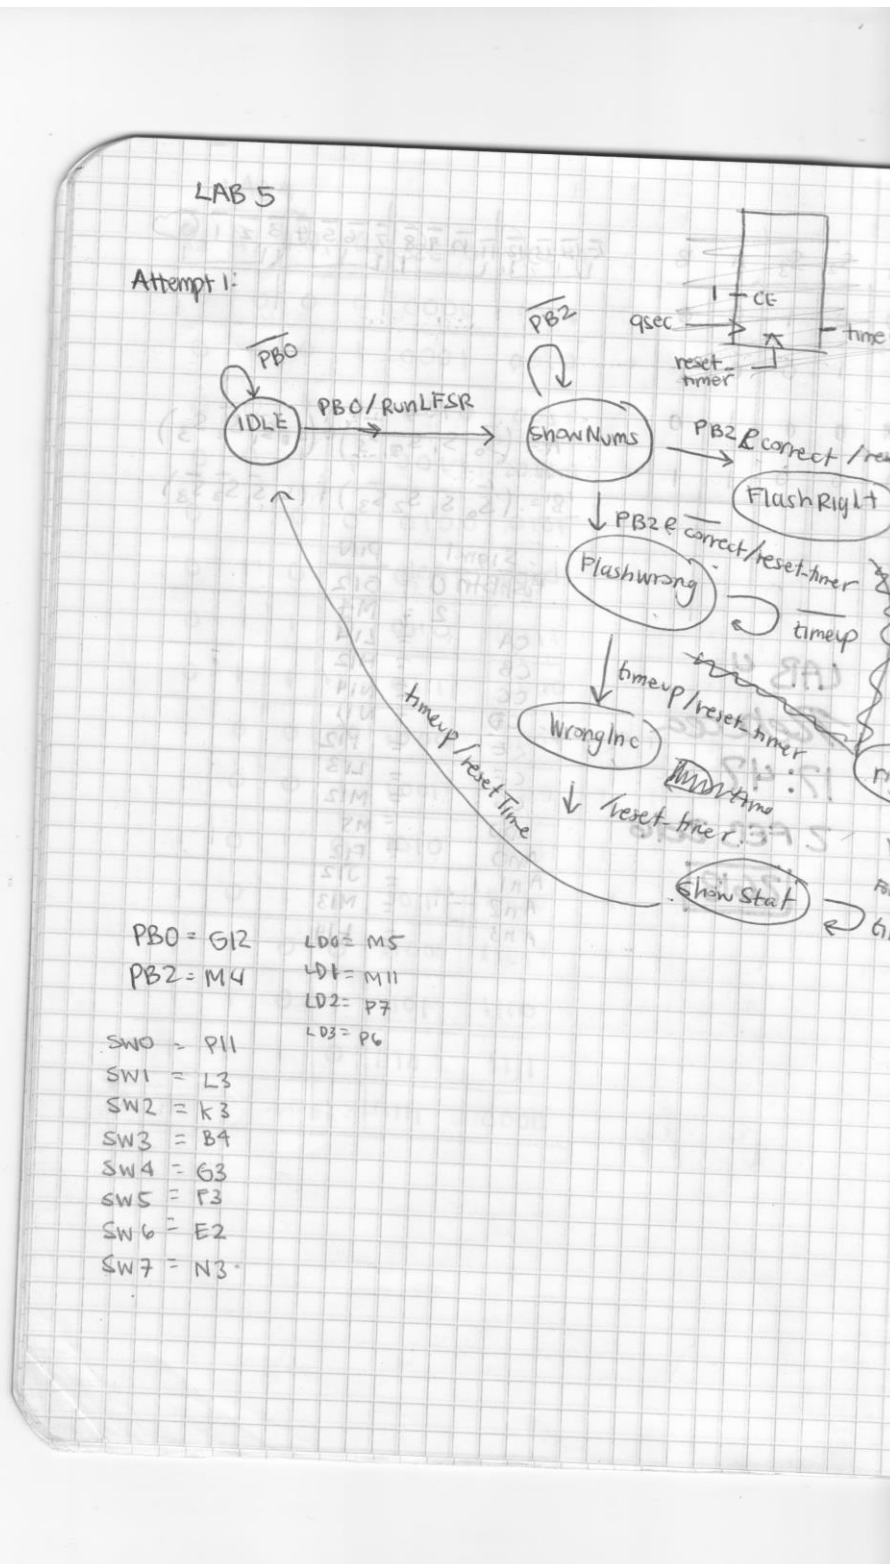 LAB 5
Attempt 1:
PB0
IDLE
PB0/RunLFSR
PB2
ShowNums
1
CE
qsec
time
reset_
timer
PB2 & correct /res
FlashRight
PB2 & correct/reset-timer
Flashwrong
timeup
timeup/reset-timer
WrongInc
time
/reset-timer
timeup/resetTime
ShowStat
PB0 = G12
PB2 = M4
LD0 = M5
LD1 = M11
LD2 = P7
LD3 = P6
SW0 = P11
SW1 = L3
SW2 = K3
SW3 = B4
SW4 = G3
SW5 = F3
SW6 = E2
SW7 = N3